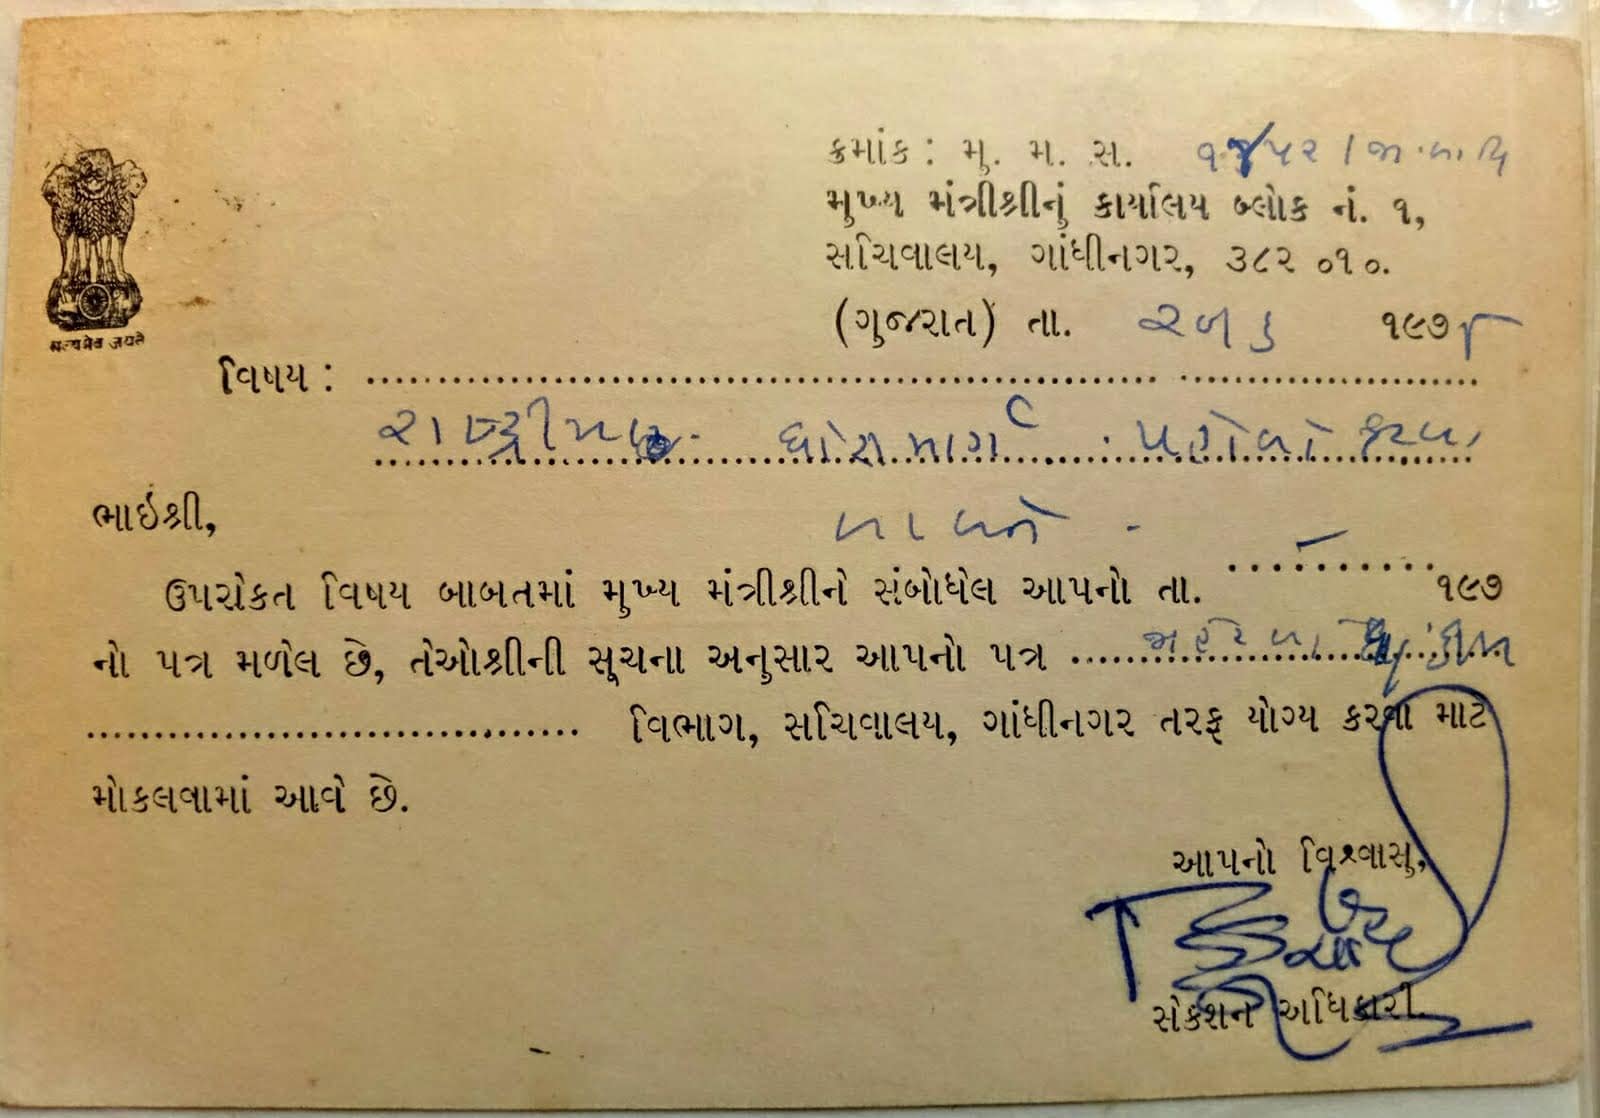 सत्यमेव जयते
ક્રમાંક : મુ. મ. સ.
મુખ્ય મંત્રીશ્રીનું કાર્યાલય બ્લોક નં. ૧,
સચિવાલય, ગાંધીનગર, ૩૮૨ ૦૧૦.
(ગુજરાત) તા. ૧૯૭
વિષય :
રાષ્ટ્રીય ધોરીમાર્ગ પહોળો કરવા
બાબતે -
ભાઇશ્રી,
ઉપરોકત વિષય બાબતમાં મુખ્ય મંત્રીશ્રીને સંબોધેલ આપનો તા. - ૧૯૭
નો પત્ર મળેલ છે, તેઓશ્રીની સૂચના અનુસાર આપનો પત્ર જાહેર
વિભાગ, સચિવાલય, ગાંધીનગર તરફ યોગ્ય કરવા માટે
મોકલવામાં આવે છે.
આપનો વિશ્વાસુ,
સેકશન અધિકારી.